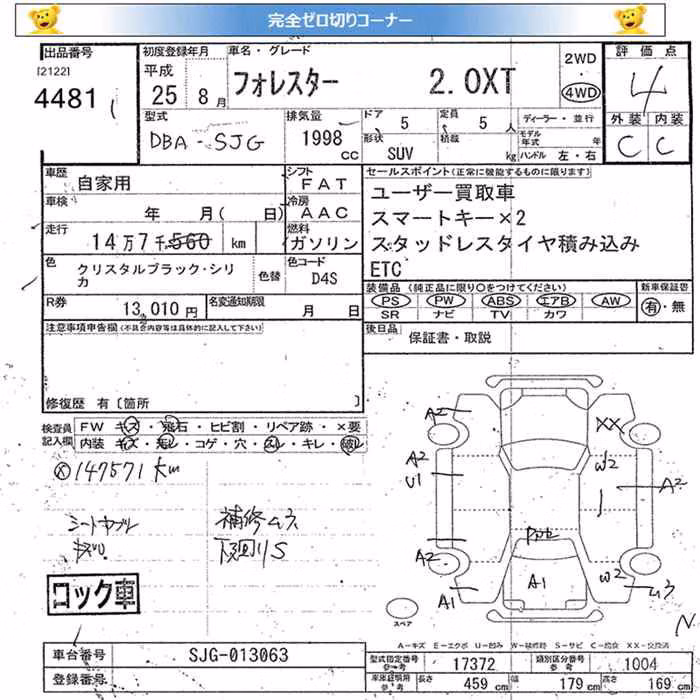 完全ゼロ切りコーナー
出品番号
[2122]
4481
初度登録年月
平成
25年 8月
車名・グレード
フォレスター 2.0XT
2WD
4WD
評価点
4
外装 内装
C C
型式
DBA-SJG
排気量
1998
cc
ドア 5
定員 5 人
形状 SUV
積載 kg
ディーラー・並行
モデル年式 年
ハンドル 左・右
車歴
自家用
シフト
FAT
車検
年 月( 日)
冷房
AAC
走行
14万7千560 km
燃料
ガソリン
色
クリスタルブラック・シリカ
色替
色コード
D4S
R券
13,010円
名変通知期限
月 日
セールスポイント(正常に機能するものに限ります)
ユーザー買取車
スマートキー×2
スタッドレスタイヤ積み込み
ETC
装備品(純正品に限り○をつけてください)
PS PW ABS エアB AW
SR ナビ TV カワ
新車保証書
有・無
後日品
保証書・取説
注意事項申告欄(不具合内容等は具体的に記入して下さい)
修復歴 有〔箇所 〕
検査員記入欄
FW キズ・飛石・ヒビ割・リペア跡・×要
内装 キズ・汚レ・コゲ・穴・スレ・キレ・破レ
147571km
シートケブル
補修ムラ
下廻りS
ロック車
A2
XX
A2
U1
W2
A2
A2
A1
A1
W2
ムラ
スペア
N
A-キズ E-エクボ U-凹み W-補修跡 S-サビ C-腐食 XX-交換済
車台番号
SJG-013063
登録番号
型式指定番号
参考
17372
類別区分番号
参考
1004
車庫証明用
参考
長さ 459 cm 幅 179 cm 高さ 169 cm